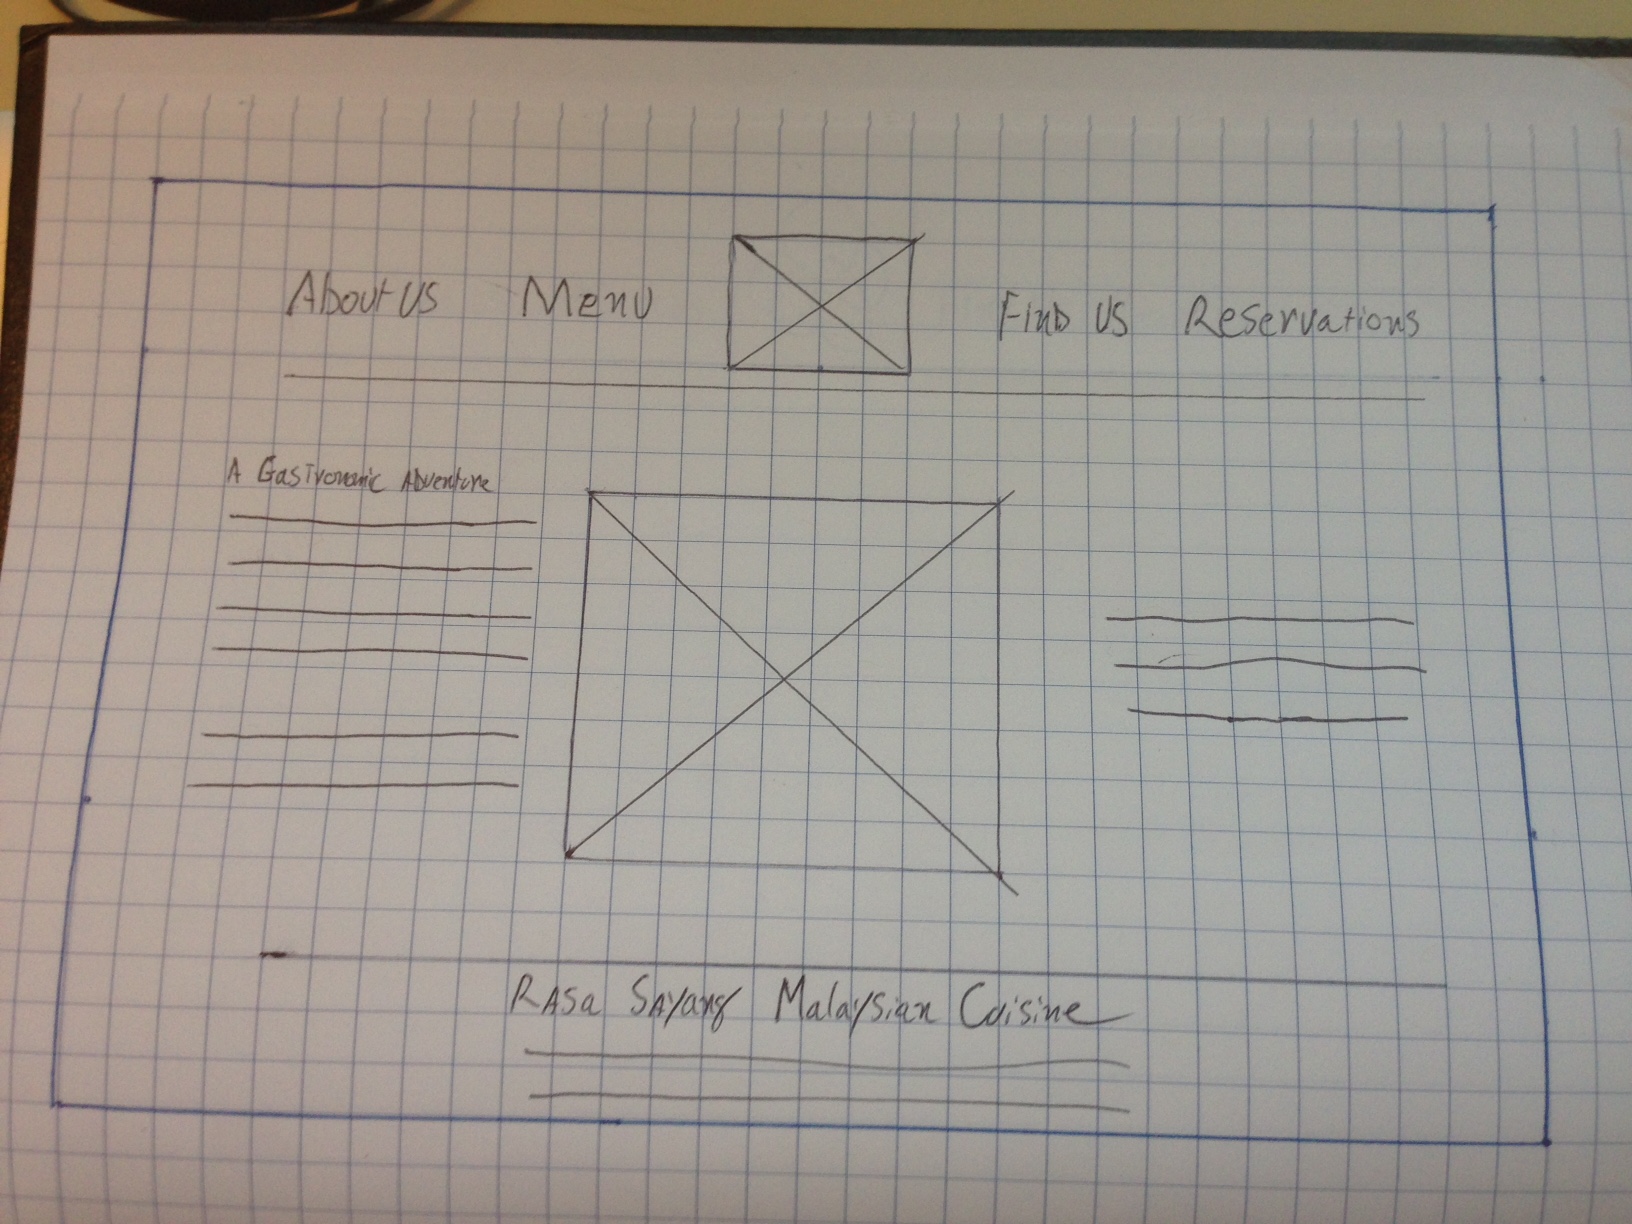 About Us Menu Find Us Reservations
A Gastronomic Adventure
Rasa Sayang Malaysian Cuisine